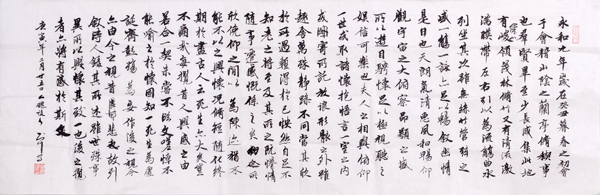 永和九年歲在癸丑暮春之初會
于會稽山陰之蘭亭脩稧事
也群賢畢至少長咸集此地
有崇山峻領茂林脩竹又有清流激
湍暎帶左右引以為流觴曲水
列坐其次雖無絲竹管弦之
盛一觴一詠亦足以暢敘幽情
是日也天朗氣清惠風和暢仰
觀宇宙之大俯察品類之盛
所以遊目騁懷足以極視聽之
娛信可樂也夫人之相與俯仰
一世或取諸懷抱悟言一室之內
或因寄所託放浪形骸之外雖
趣舍萬殊靜躁不同當其欣
於所遇蹔得於己怏然自足不
知老之將至及其所之既惓情
隨事遷感慨係之矣向之所
欣俛仰之閒以為陳迹猶不
能不以之興懷況脩短隨化終
期於盡古人云死生亦大矣豈
不痛哉每攬昔人興感之由
若合一契未嘗不臨文嗟悼不
能喻之於懷固知一死生為虛
誕齊彭殤為妄作後之視今
亦由今之視昔悲夫故列
敘時人錄其所述雖世殊事
異所以興懷其致一也後之攬
者亦將有感於斯文
庚寅年